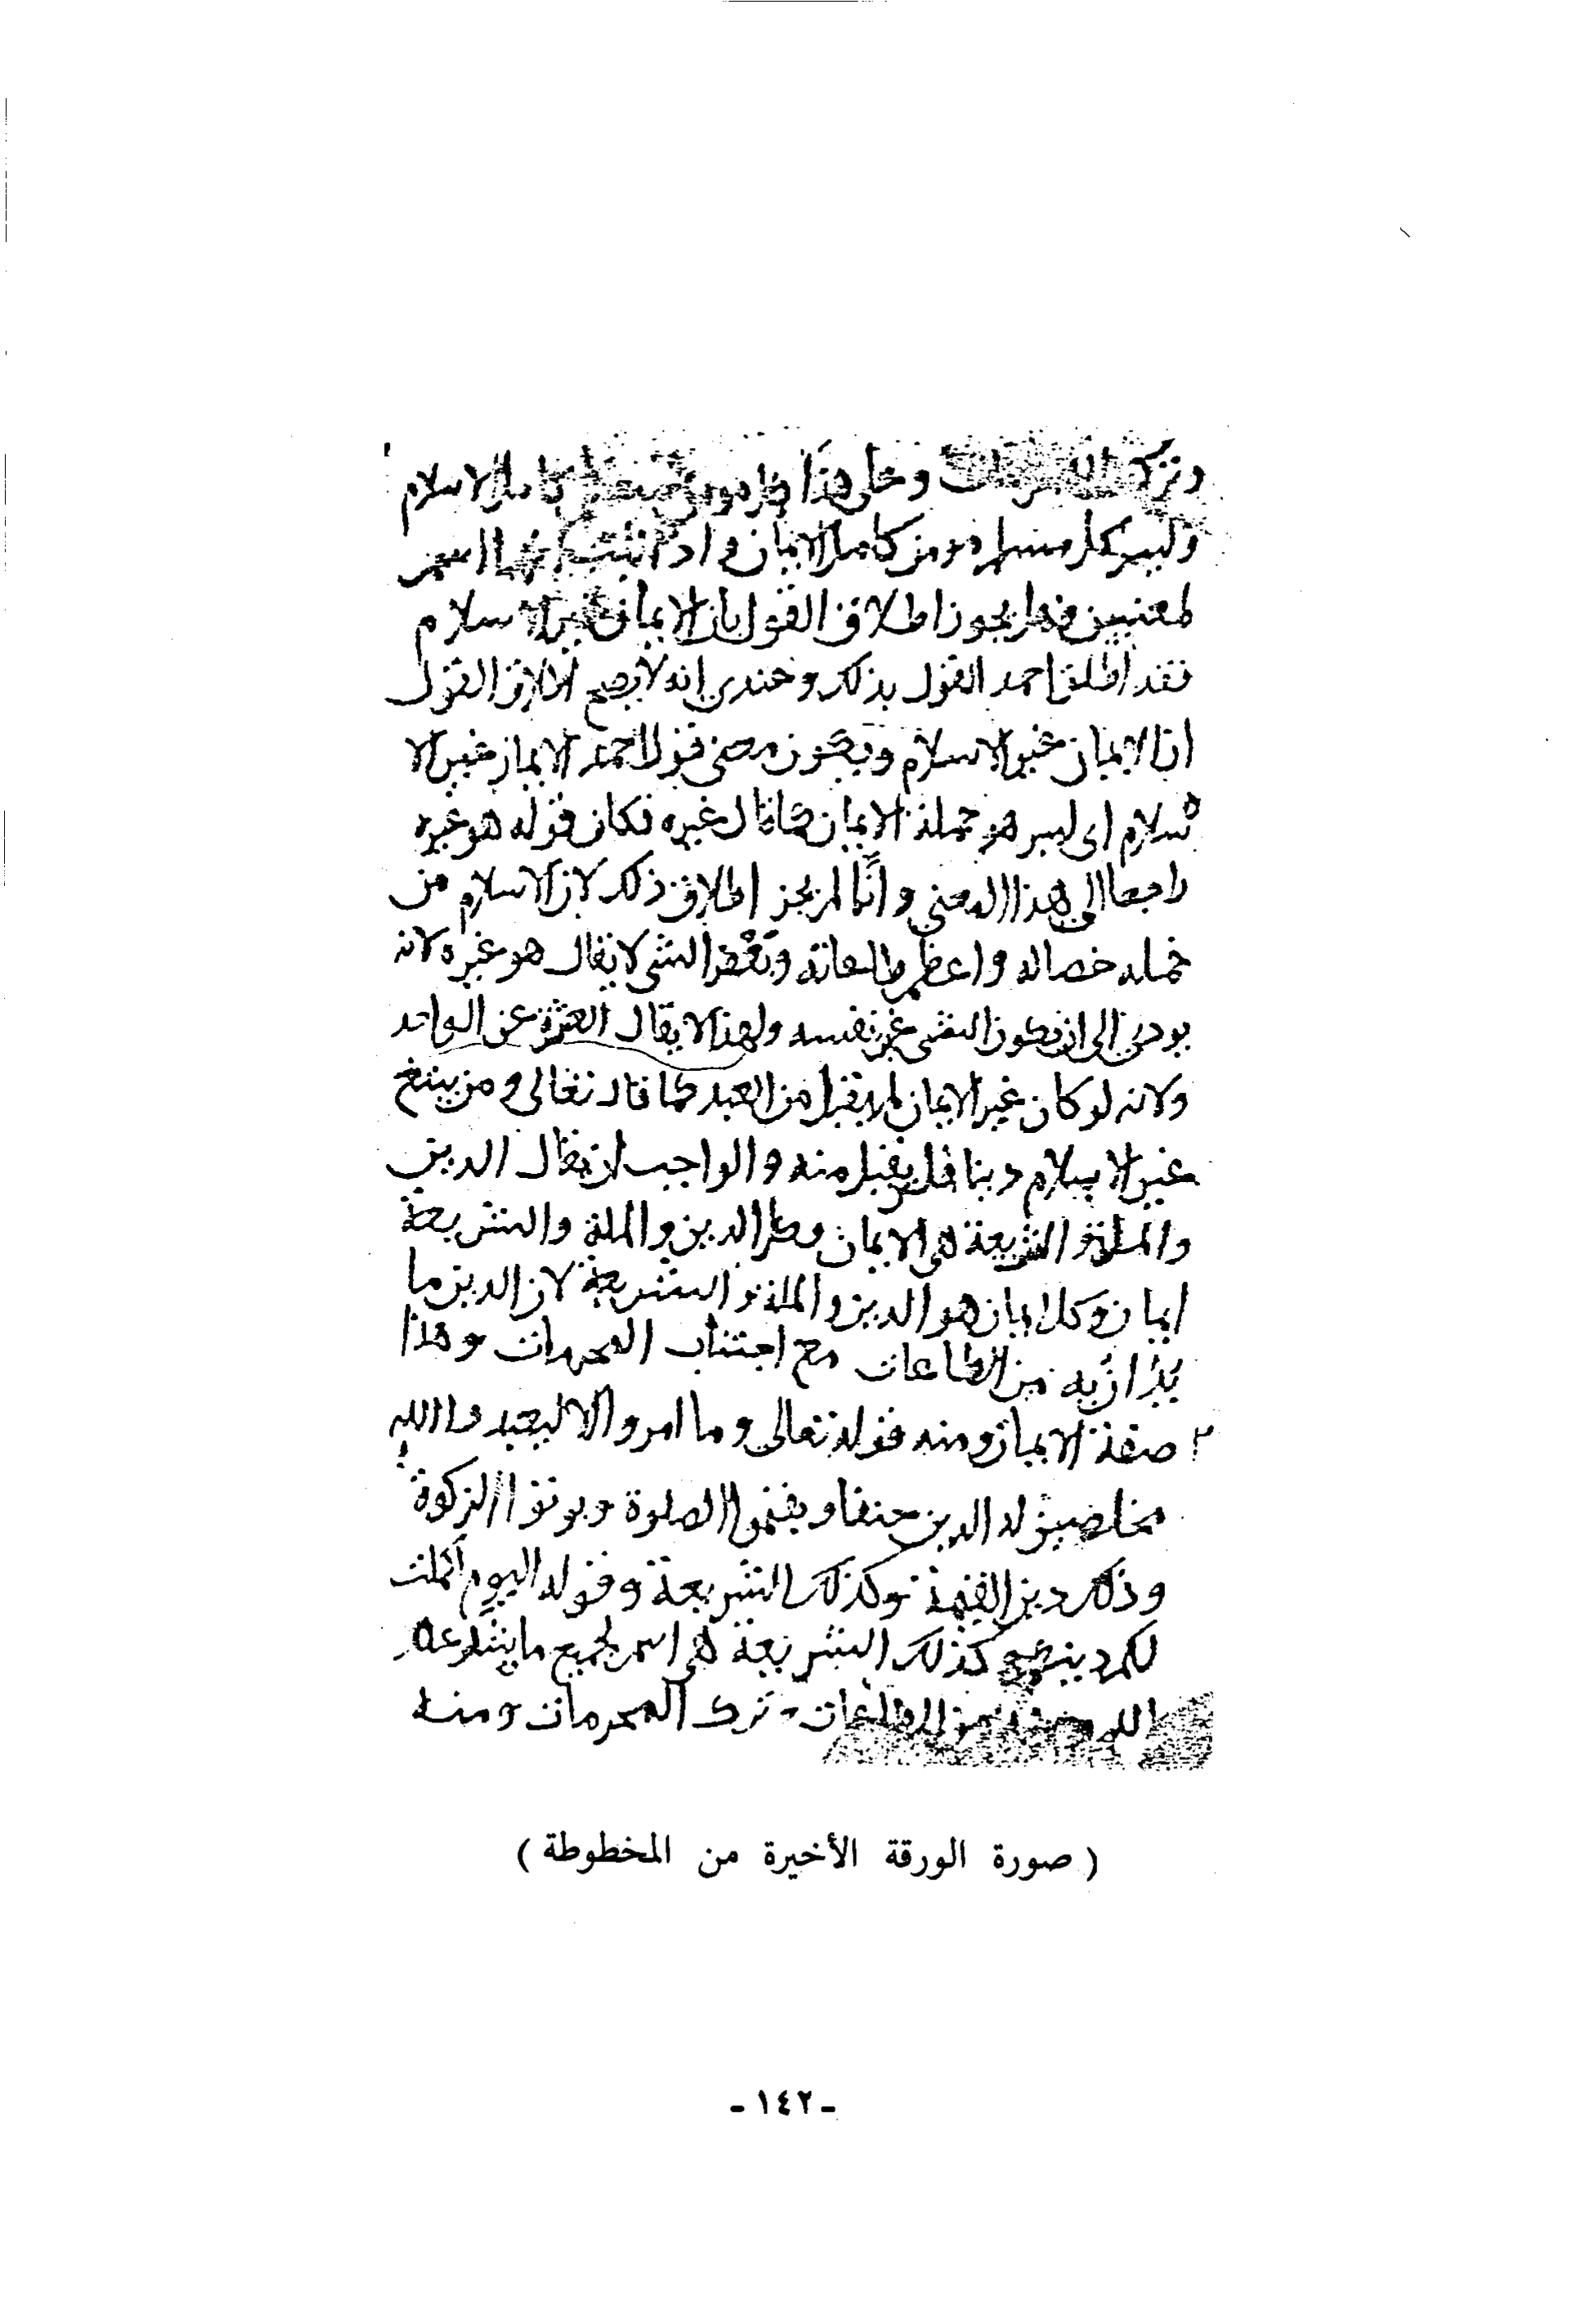 وترك المحرمات وعلى هذا كل مومن كامل الاسلام
وليس كل مسلم مومن كامل الايمان واذا ثبت انهما اسمين
لمعنيين فهل يجوز اطلاق القول بان الايمان غير الاسلام
فقد اطلق احمد القول بذلك وعندي انه لا يصح اطلاق القول
ان الايمان غير الاسلام ويكون معنى قول احمد الايمان غير الا
سلام اى ليس هو جملة الايمان كما قال غيره فكان قوله هو غيره
راجعا الى هذا المعنى وانما لم يجز اطلاق ذلك لان الاسلام من
جمله خصاله واعظم طاعاته وبعض الشى لا يقال هو غيره لانه
يودى الى ان يكون الشى غير نفسه ولهذا لا يقال العشرة غير الواحد
ولانه لو كان غير الايمان لم يقبل من العبد كما قال تعالى ومن يبتغ
غير الاسلام دينا فلن يقبل منه والواجب ان يقال الدين
والملة والشريعة هى الايمان وكل الدين والملة والشريعة
ايمان وكل ايمان هو الدين والملة والشريعة لان الدين ما
يدان به من الطاعات مع اجتناب المحرمات وهذا
صفة الايمان ومنه قوله تعالى وما امروا الا ليعبدوا الله
مخلصين له الدين حنفا ويقيموا الصلوة ويوتوا الزكوة
وذلك دين القيمة وكذلك الشريعة وقوله اليوم اكملت
لكم دينكم وكذلك الشريعة هى اسم لجميع ما شرعه
الله من الطاعات وترك المحرمات ومنه
( صورة الورقة الأخيرة من المخطوطة )
- ١٤٢ -